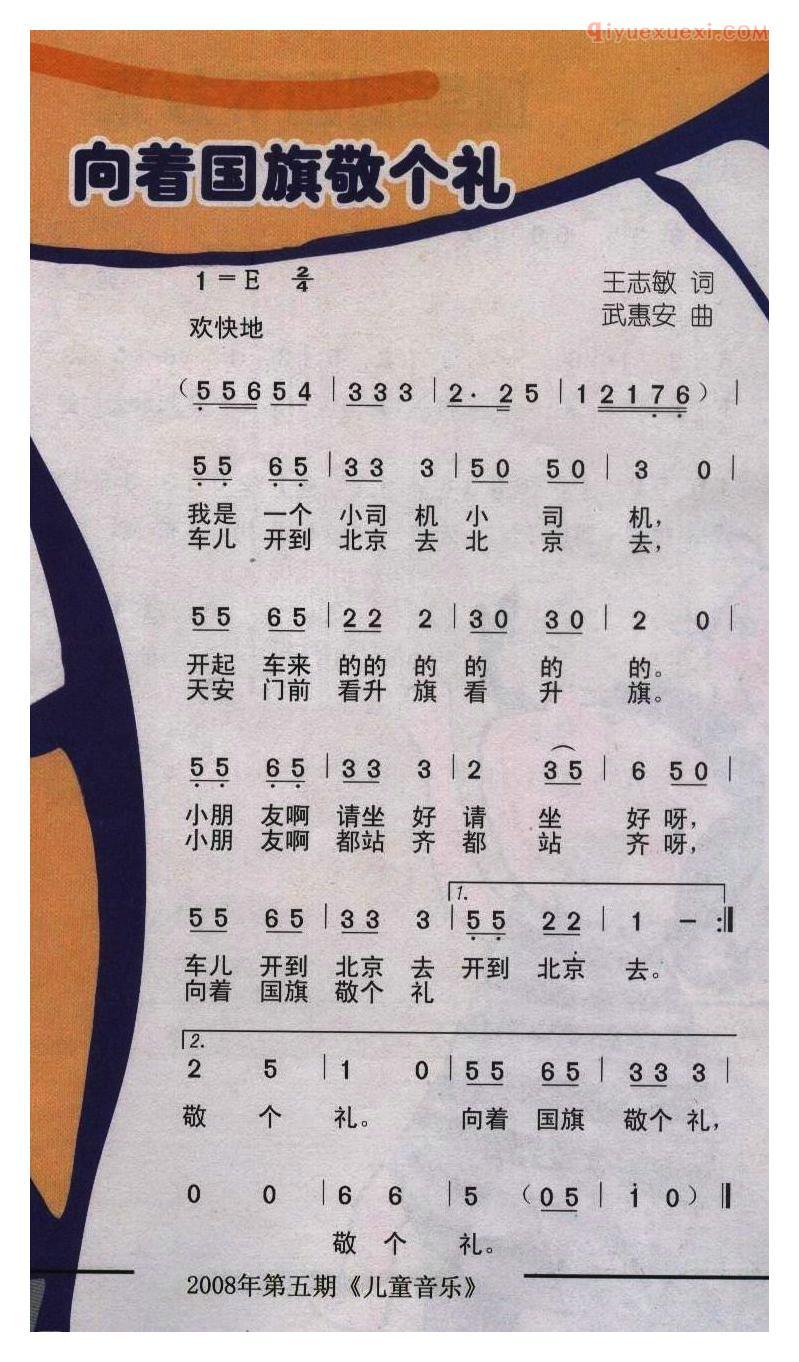 qiyuexuexi.COM
向着国旗敬个礼
1=E 2/4
王志敏 词
欢快地
武惠安 曲
(5 5 6 5 4 | 3 3 3 | 2· 2 5 | 1 2 1 7 6) |
5 5 6 5 | 3 3 3 | 5 0 5 0 | 3 0 |
我是 一个 小司 机 小 司 机，
车儿 开到 北京 去 北 京 去，
5 5 6 5 | 2 2 2 | 3 0 3 0 | 2 0 |
开起 车来 的的 的 的 的 的。
天安 门前 看升 旗 看 升 旗。
5 5 6 5 | 3 3 3 | 2 3 5 | 6 5 0 |
小朋 友啊 请坐 好 请 坐 好 呀，
小朋 友啊 都站 齐 都 站 齐 呀，
1.
5 5 6 5 | 3 3 3 | 5 5 2 2 | 1 － :‖
车儿 开到 北京 去 开到 北京 去。
向着 国旗 敬个 礼
2.
2 5 | 1 0 | 5 5 6 5 | 3 3 3 |
敬 个 礼。 向着 国旗 敬个 礼，
0 0 | 6 6 | 5 (0 5 | 1 0) ‖
敬 个 礼。
2008年第五期《儿童音乐》